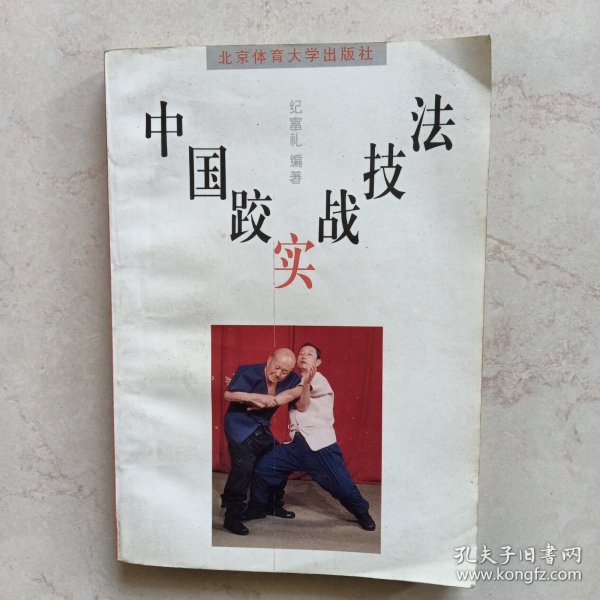 北京体育大学出版社
中国跤实战技法
纪富礼 编著
孔夫子旧书网
www.kongfz.com